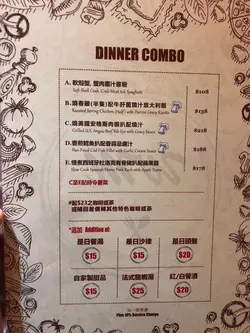 DINNER COMBO
A. 軟殼蟹, 蟹肉墨汁意粉 $108
Soft Shell Crab, Crab Meat Ink Spaghetti
B. 燒春雞(半隻)配牛肝菌燒汁意大利飯 $138
Roasted Spring Chicken (Half) with Porcini Gravy Risotto
C. 燒美國安格斯肉眼扒配燒汁 $218
Grilled U.S. Angus Beef Rib Eye with Gravy Sauce
D. 香煎鱈魚扒配香蒜忌廉汁 $188
Pan-Fried Cod Fish Fillet with Garlic Cream Sauce
E. 慢煮西班牙杜洛克有骨豬扒配蘋果蓉 $178
Slow Cook Spanish Duroc Pork Rack with Apple Puree
C至E配時令蔬菜
#配$23之咖啡或茶
或補回差價轉其他特色咖啡或茶
*追加 Addition of:
是日餐湯 是日沙律 是日頭盤
$15 $15 $20
自家製甜品 法式龍蝦湯 紅/白餐酒
$15 $25 $20
加一服務費
Plus 10% Service Charge